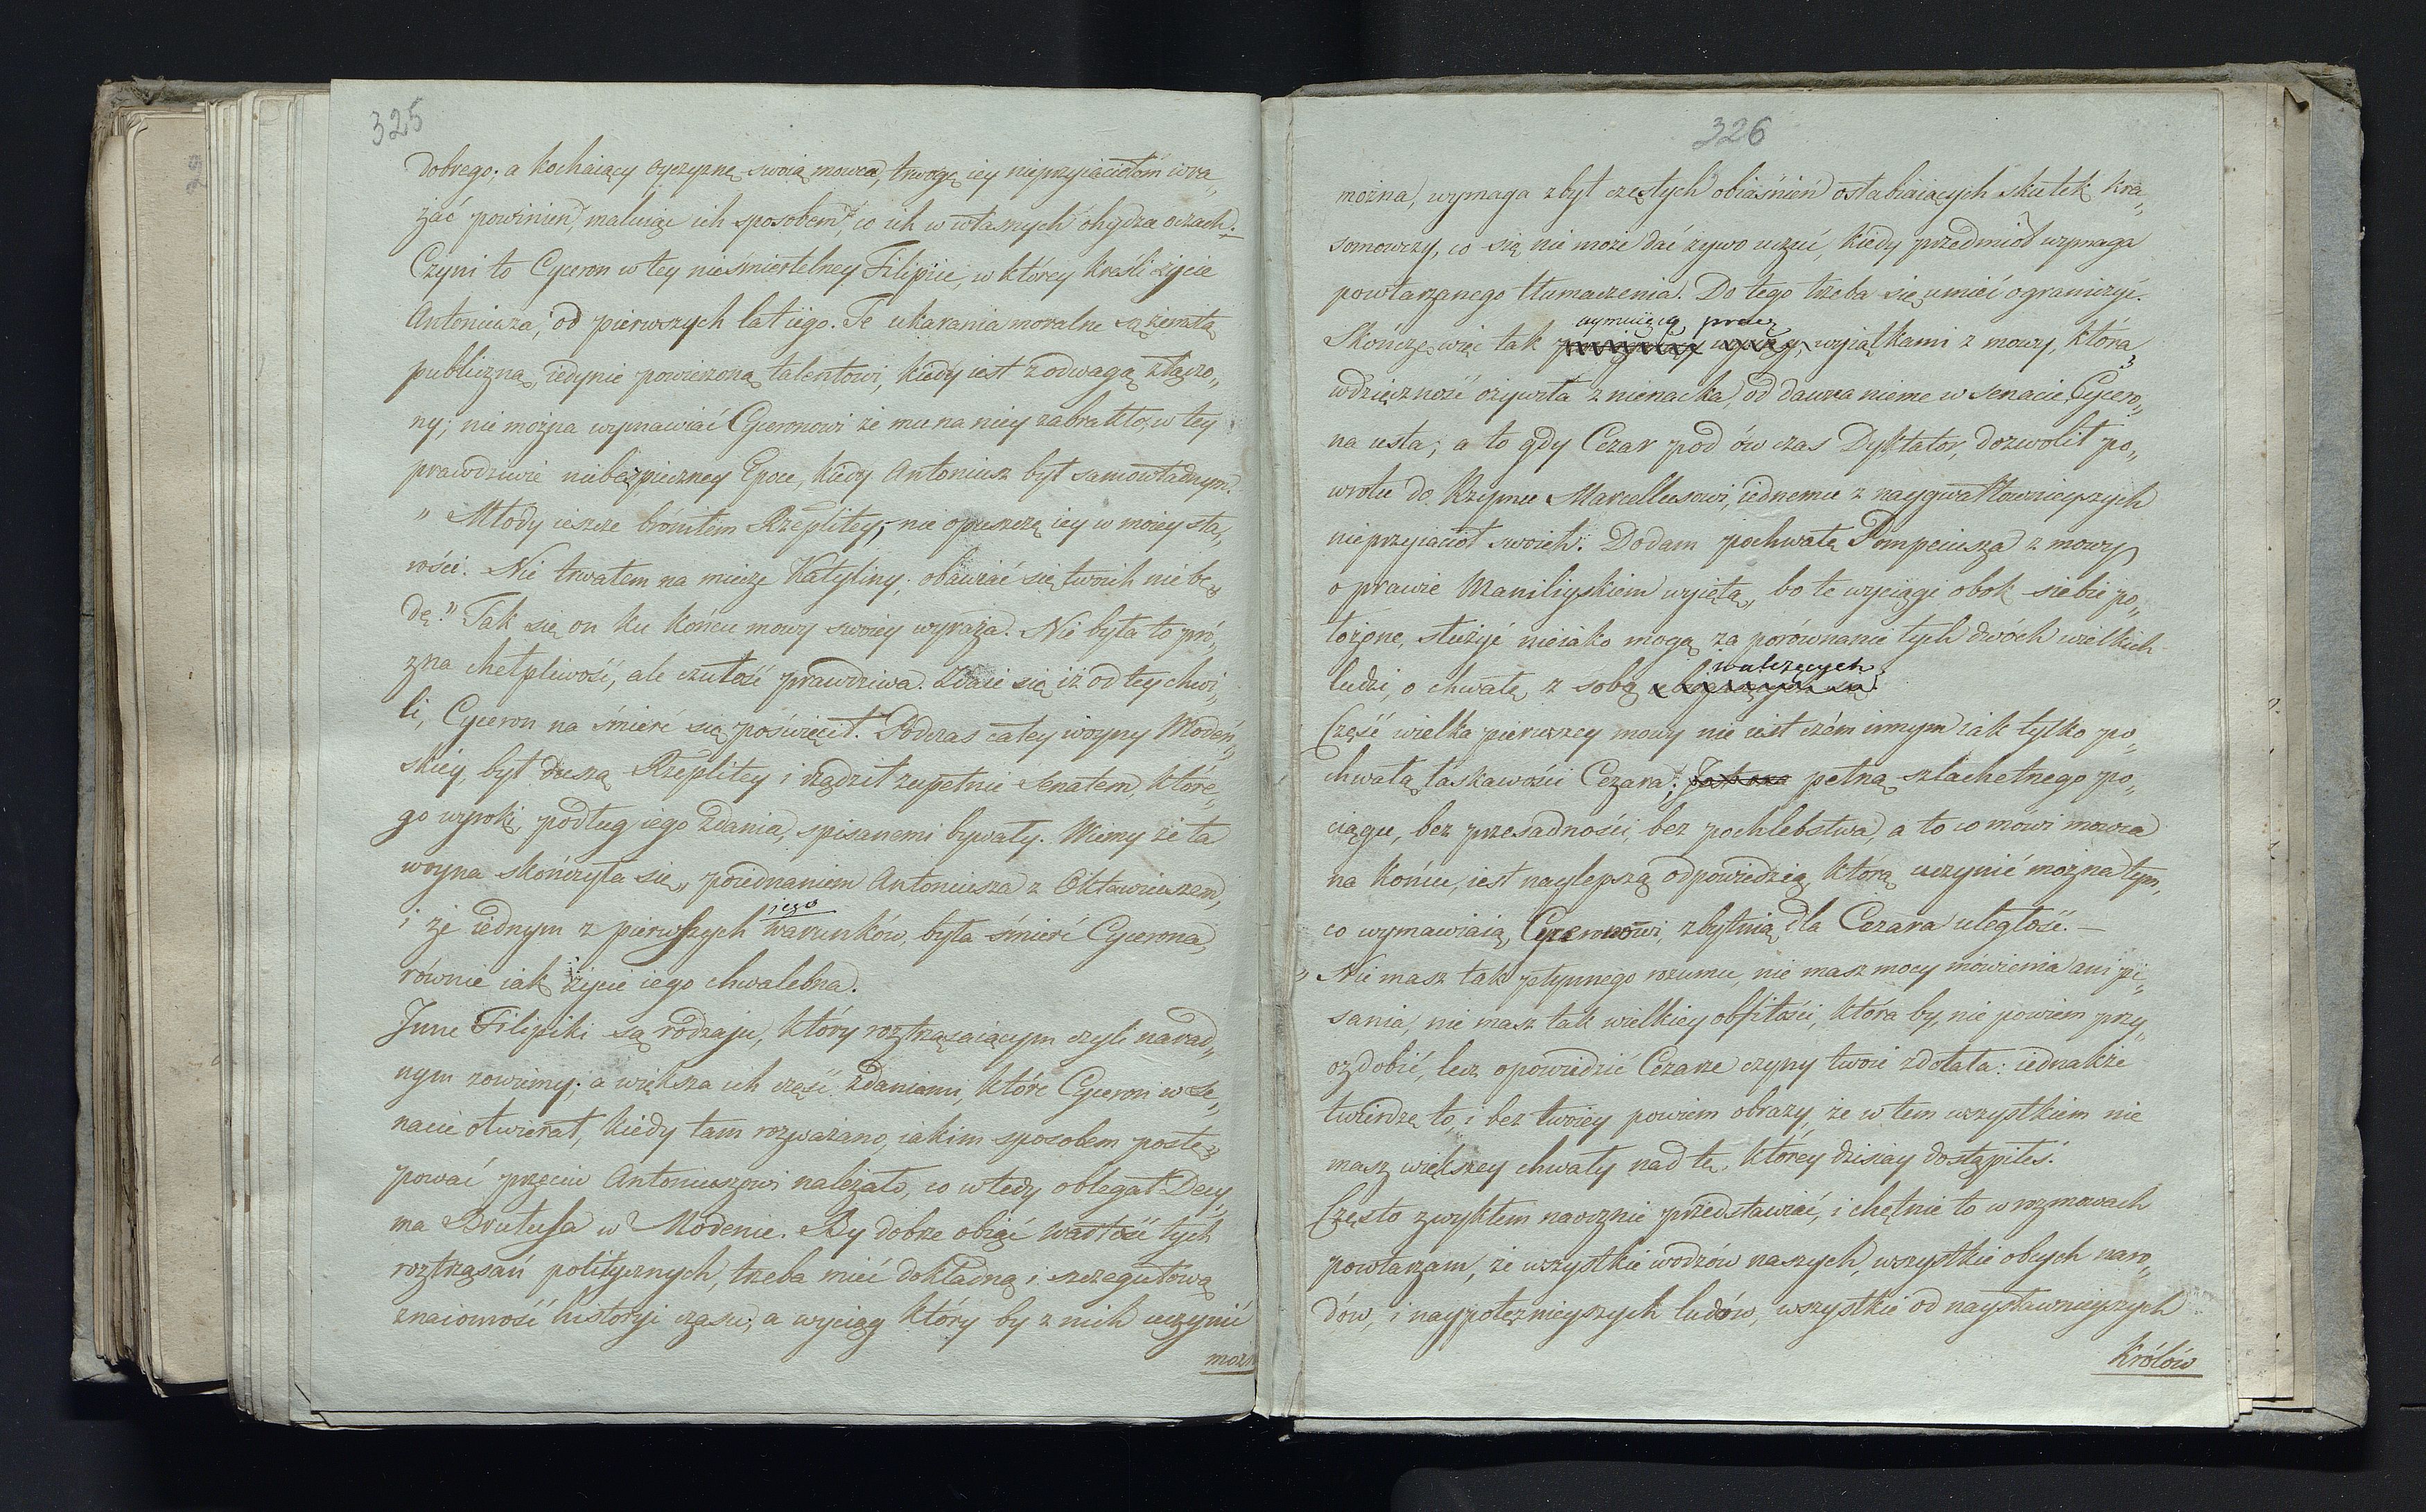 325
dobrego; a kochaiący oyczyznę swoią mowca, trwogę iey nieprzyiaciołom wra„
żać powinien, maluiąc ich sposobem, co ich w własnych ohydza oczach.
Czyni to Cyceron w tey nieśmiertelney Filipice, w którey kreśli życie
Antoniusza, od pierwszych lat iego. Te ukarania moralne są zemstą
publiczną, iedynie powierzoną talentowi, kiedy iest z odwagą złączo„
ny; nie można wymawiać Cyceronowi że mu na niey zabrakło, w tey
prawdziwie niebezpieczney Epoce, kiedy Antoniusz był samowładnym.
„ Młody ieszcze broniłem Rzeplitey, nie opuszczę iey w moiey sta„
rości. Nie trwałem na miecze Katyliny, obawiać się twoich nie bę„
dę." Tak się on ku końcu mowy swoiey wyraża. Nie była to pró„
żna chełpliwość, ale czułość prawdziwa. Zdaie się iż od tey chwi„
li, Cyceron na śmierć się poświęcił. Podczas całey woyny Modeń„
skiey, był duszą Rzeplitey i rządził zupełnie Senatem, które„
go wyroki, podług iego zdania, spisanemi bywały. Wiemy że ta
woyna skończyła się, poiednaniem Antoniusza z Oktawiuszem,
i że iednym z pierwszych iego warunków, była śmierć Cycerona,
równie iak życie iego chwalebna.
Inne Filipiki są rodzaju, który roztrząsaiącym czyli narad„
nym zowiemy; a większa ich część zdaniami, które Cyceron w Se„
nacie otwierał, kiedy tam rozważano, iakim sposobem postę„
pować przeciw Antoniuszowi należało, co wtedy oblegał Decy„
ma Brutusa w Modenie. By dobrze obiąć wartość tych
roztrząsań politycznych, trzeba mieć dokładną i szczegułową
znaiomość historyi czasu, a wyciąg który by z nich uczynić
możn
326
można, wymaga zbyt częstych obiaśnień osłabiaiących skutek kra„
somowczy, co się nie może dać żywo uczuć, kiedy przedmiot wymaga
powtarzanego tłumaczenia. Do tego trzeba się umieć ograniczyć.
zymuiącą pracę
Skończę więc tak wyiątkami z mowy, którą
wdzięczność ożywiła z nienacka, od dawna nieme w Senacie, Cycero„
na usta; a to gdy Cezar pod ów czas Dyktator, dozwolił po„
wrotu do Rzymu Marcellusowi, iednemu z naygwałtownieyszych
nieprzyiaciół swoich. Dodam pochwałę Pompeiusza z mowy
o prawie Maniliyskiem wyiętą, bo te wyciągi obok siebie po„
łożone, służyć nieiako mogą za porównanie tych dwóch wielkich
walczących
ludzi, o chwałę z sobą
Część wielka pierwszey mowy nie iest czém innym iak tylko po„
chwałą łaskawości Cezara; pełną szlachetnego po„
ciągu, bez przesadności, bez pochlebstwa, a to co mówi mowca
na końcu, iest naylepszą odpowiedzią, którą uczynić można tym,
co wymawiaią, Cyceronowi, zbytnią dla Cezara uległość. —
„ Nie masz tak płynnego rozumu, nie masz mocy mówienia ani pi„
sania, nie masz tak wielkiey obfitości, która by, nie powiem przy„
ozdobić, lecz opowiedzić Cezarze czyny twoie zdołała: iednakże
twierdzę to, i bez twoiey powiem obrazy, że w tem wszystkiem nie
masz większey chwały nad tę, którey dzisiay dostąpiłeś.
Często zwykłem naocznie przedstawiać, i chętnie to w rozmowach
powtarzam, że wszystkie wodzów naszych, wszystkie obcych naro„
dów, i naypotężnieyszych ludów, wszystkie od naysławnieyszych
Królów